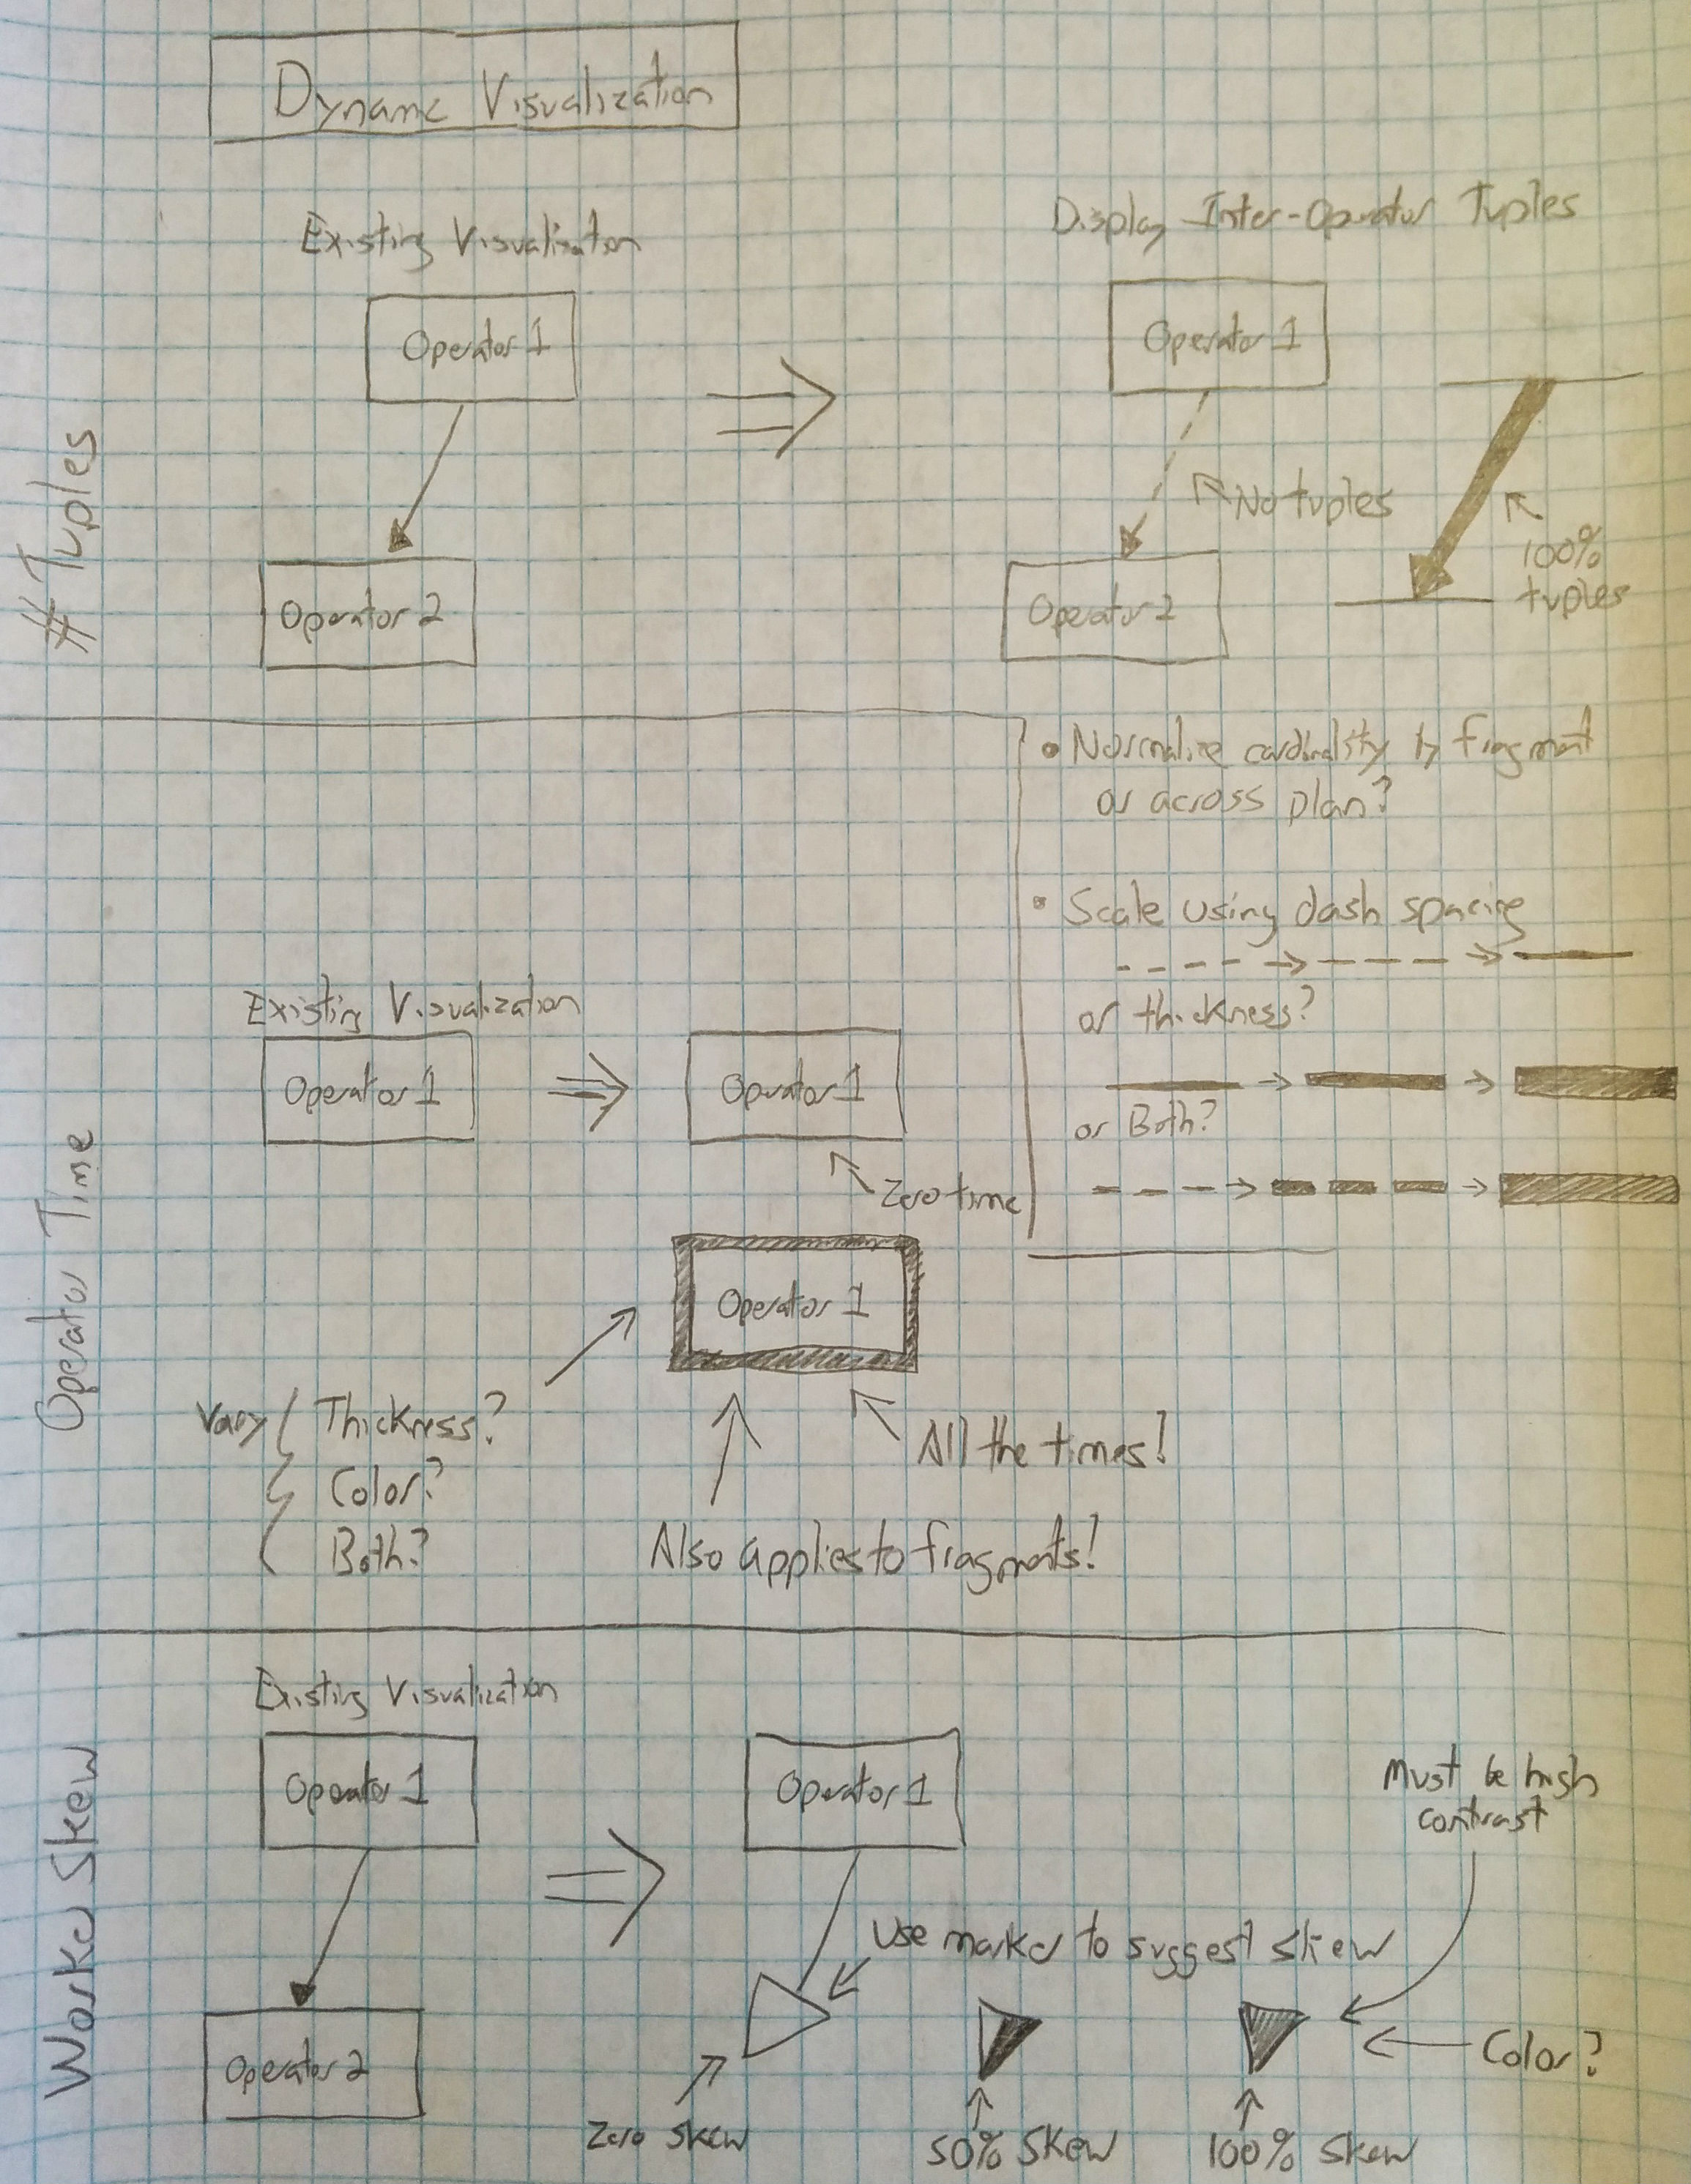 Dynamic Visualization
# Tuples
Existing Visualization
Operator 1
Operator 2
Display Inter-Operator Tuples
Operator 1
No tuples
100%
tuples
Operator 2
• Normalize cardinality by fragment
or across plan?
• Scale using dash spacing
or thickness?
or Both?
Operator Time
Existing Visualization
Operator 1
Operator 1
Zero time
Operator 1
Vary
Thickness?
Color?
Both?
All the times!
Also applies to fragments!
Worker Skew
Existing Visualization
Operator 1
Operator 2
Operator 1
Must be high
contrast
Use marker to suggest skew
Color?
Zero skew
50% Skew
100% Skew